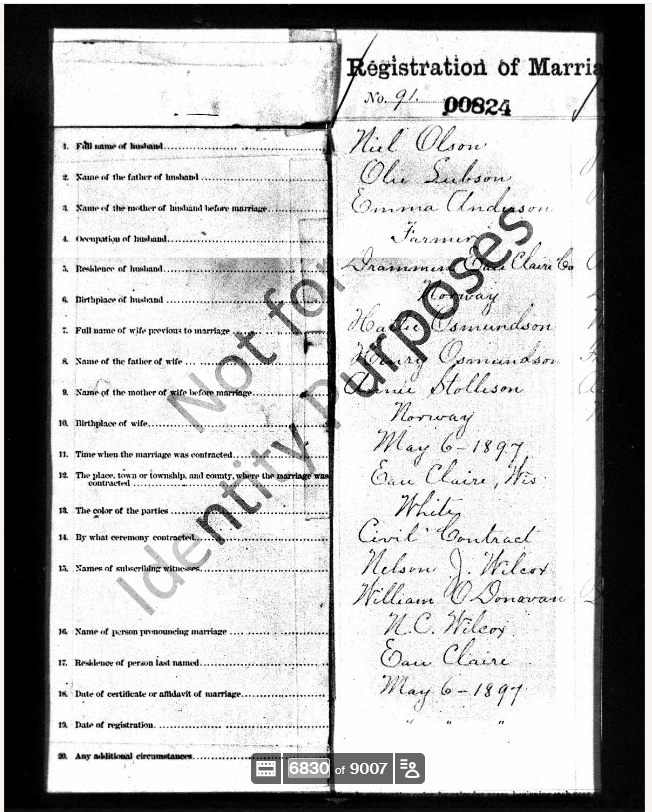 Registration of Marria
No. 91. 00824
1. Full name of husband Niel Olson
2. Name of the father of husband Olie
3. Name of the mother of husband before marriage Emma Anderson
4. Occupation of husband Farmer
5. Residence of husband Drammen Eau Claire Co
6. Birthplace of husband Norway
7. Full name of wife previous to marriage Hattie Osmundson
8. Name of the father of wife Henry Osmundson
9. Name of the mother of wife before marriage Annie
10. Birthplace of wife Norway
11. Time when the marriage was contracted May 6-1897
12. The place, town or township, and county, where the marriage was
contracted Eau Claire, Wis
13. The color of the parties White
14. By what ceremony contracted Civil Contract
15. Names of subscribing witnesses Nelson J. Wilcox
William O'Donavan
16. Name of person pronouncing marriage N.C. Wilcox
17. Residence of person last named Eau Claire
18. Date of certificate or affidavit of marriage May 6-1897
19. Date of registration " " "
20. Any additional circumstances
Not for
Identity Purposes
6830 of 9007